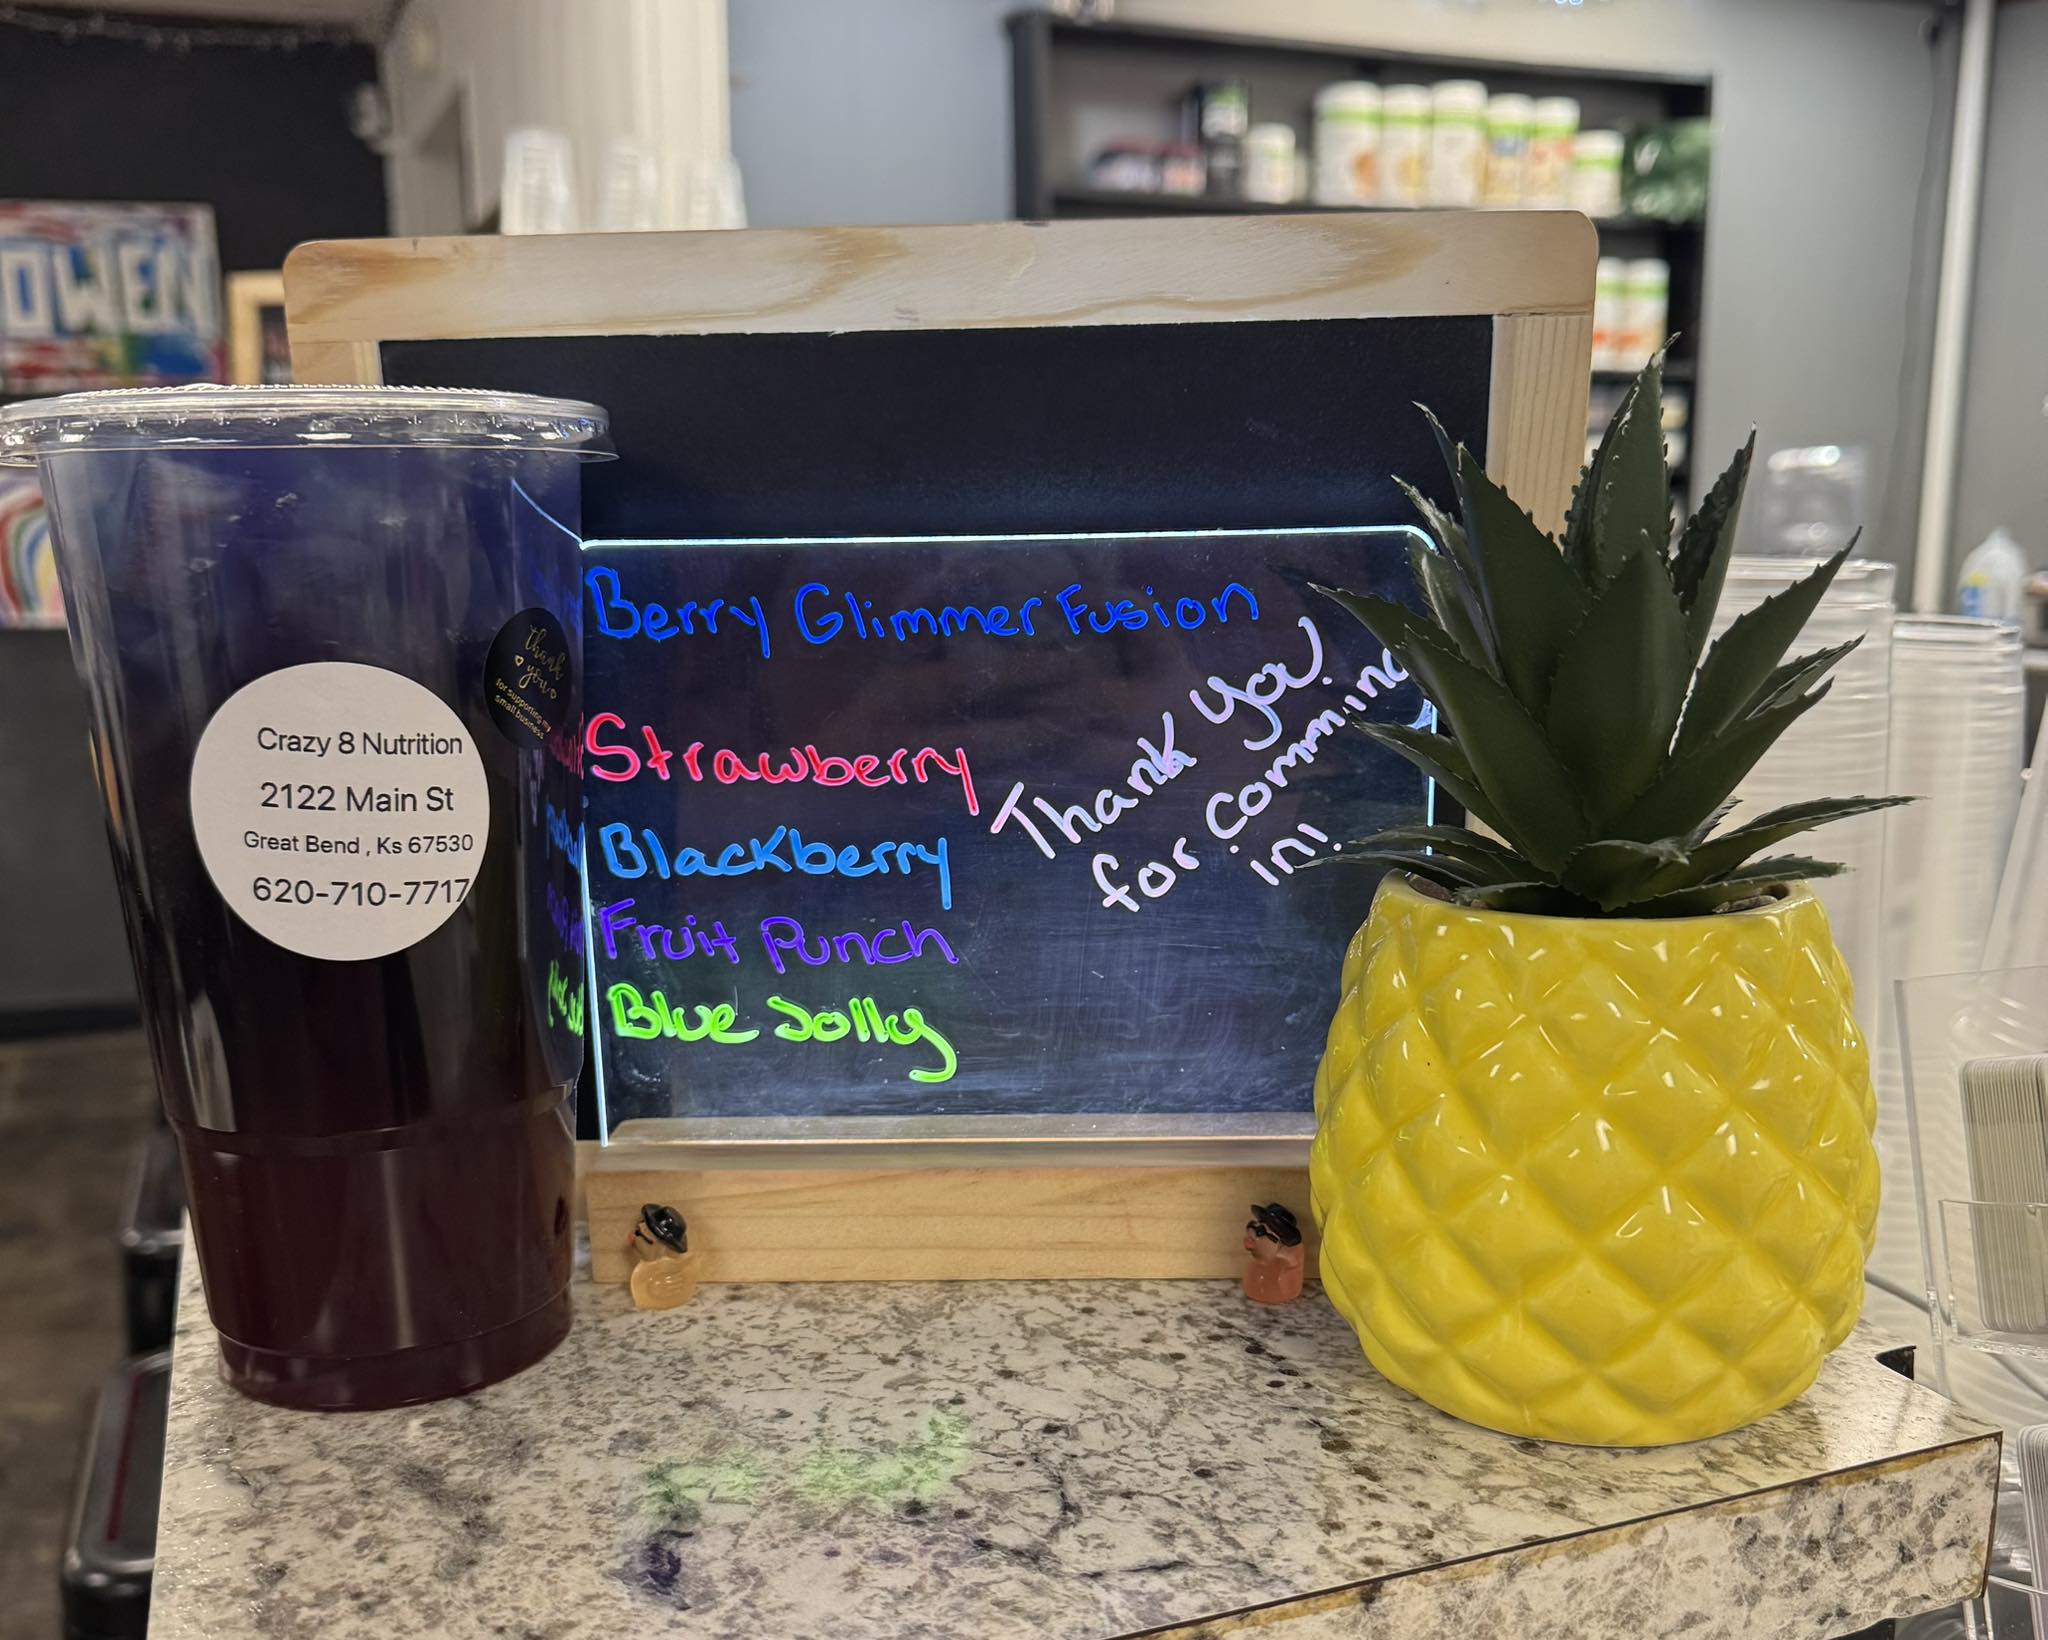 OWEN
Crazy 8 Nutrition
2122 Main St
Great Bend , Ks 67530
620-710-7717
thank
you
for supporting my
small business
Berry Glimmer Fusion
Strawberry
Blackberry
Fruit Punch
Blue Jolly
Thank You!
for Comming
in!